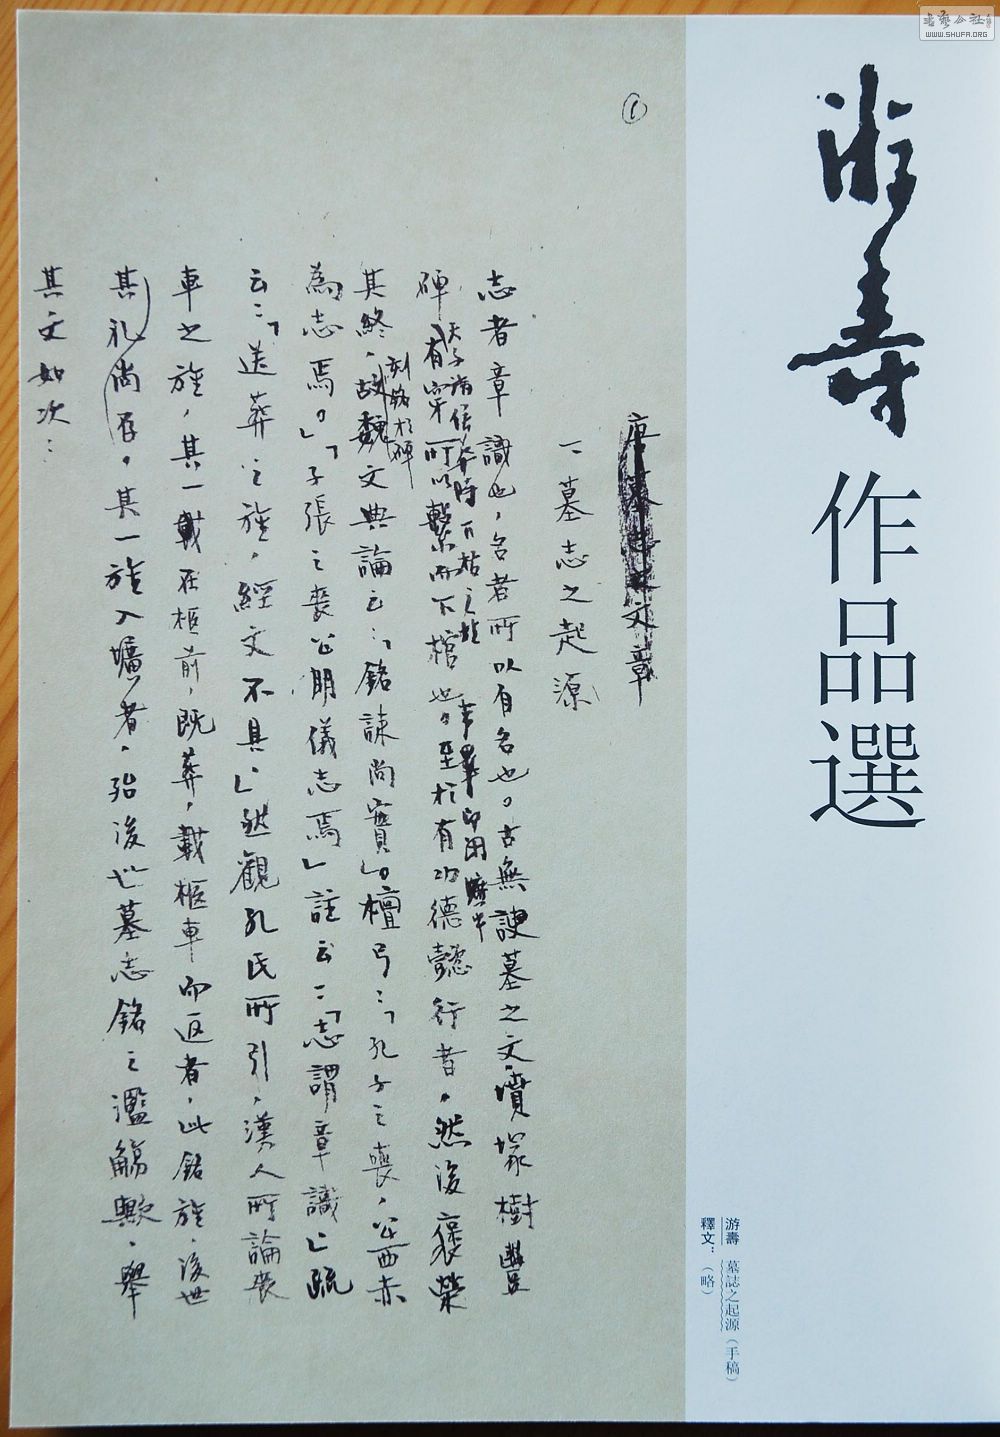 書藝公社
WWW.SHUFA.ORG
游壽
作品選
游壽 墓誌之起源(手稿)
釋文:(略)
①
唐墓志文章
一、墓志之起源
志者章識也,名者所以有名也。古無諛墓之文,墳塚樹豐
碑有穿所以繫而下棺也。至於有功德懿行者,然後褒榮
天子諸侯葬時下棺之
其終,故魏文典論云:「銘誄尚實」。檀弓:「孔子之喪,公西赤
刻銘於碑
為志焉。」「子張之喪公明儀志焉」註云:「志謂章識」疏
云:「送葬之旌,經文不具」然觀孔氏所引,漢人所論喪
車之旌,其一載在柩前,既葬,載柩車而返者,此銘旌,後世
其礼尚存。其一旌入壙者,殆後世墓志銘之濫觴歟,舉
其文如次: